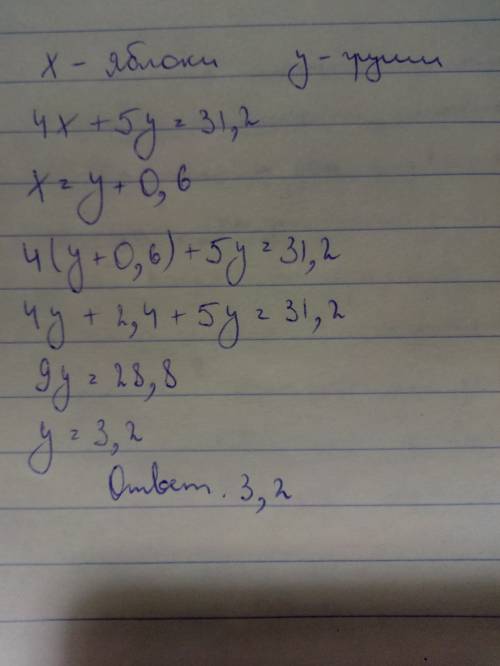 x - яблоки y - груши
4x + 5y = 31,2
x = y + 0,6
4(y + 0,6) + 5y = 31,2
4y + 2,4 + 5y = 31,2
9y = 28,8
y = 3,2
Ответ. 3,2